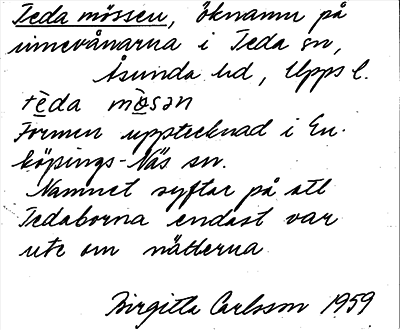 Teda mössen, öknamn på
innevånarna i Teda sn,
Åsunda hd, Upps l.
tèda mɷ̀sən
Formen upptecknad i En-
köpings-Näs sn.
Namnet syftar på att
Tedaborna endast var
ute om nätterna
Birgitta Carlsson 1959